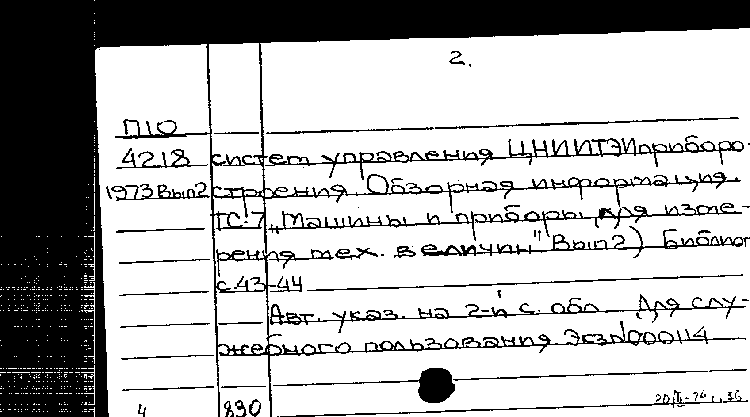 2.
П10
4218 систем управления ЦНИИТЭИприборо-
1973 Вып2 строения. Обзорная информация.
ТС-7 „Машины и приборы для изме-
рения мех. величин" Вып2) Библиог
с.43-44
Авт. указ. на 2-й с. обл. Для слу-
жебного пользования Экз№000114
4 830